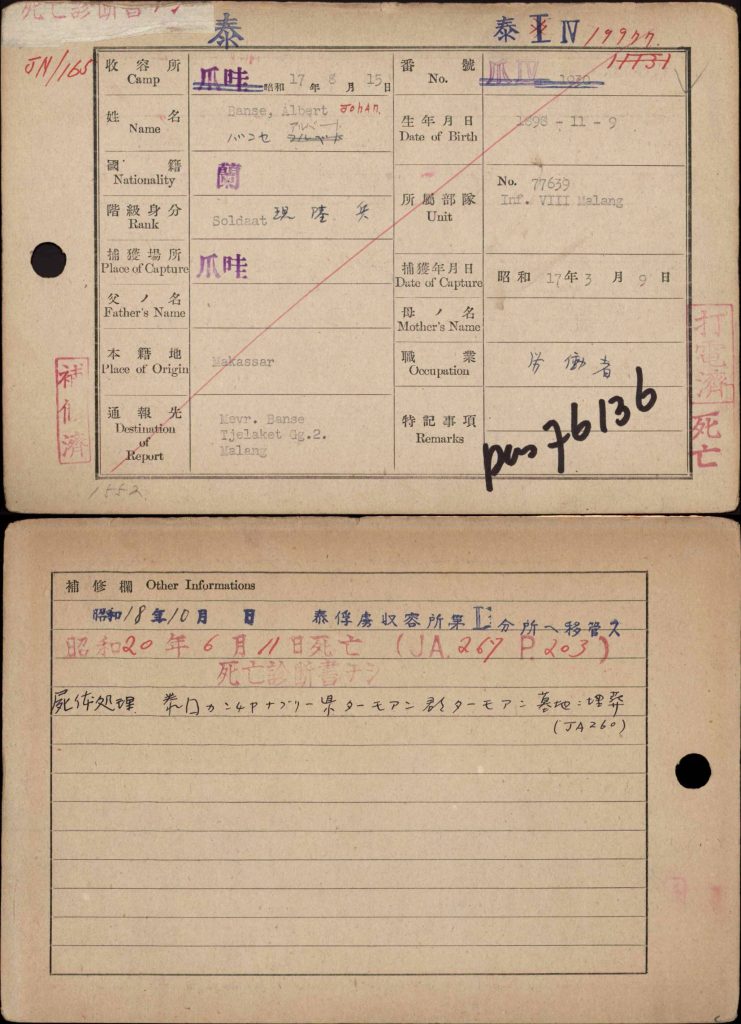 死亡診断書ナシ
泰
泰 IV 19977.
JN/165
11131
收容所 Camp 爪哇 昭和 17 年 8 月 15 日
番號 No. 爪 IV 1930
姓名 Name Banse, Albert Johan.
バンセ アルバート
生年月日 Date of Birth 1898 - 11 - 9
國籍 Nationality 蘭
階級身分 Rank Soldaat 現 陸 兵
所屬部隊 Unit No. 77639
Inf. VIII Malang
捕獲場所 Place of Capture 爪哇
捕獲年月日 Date of Capture 昭和 17 年 3 月 9 日
父ノ名 Father's Name
母ノ名 Mother's Name
本籍地 Place of Origin Makassar
職業 Occupation 労働者
通報先 Destination of Report Mevr. Banse
Tjelaket Gg.2.
Malang
特記事項 Remarks
pas 76136
補修濟
打電濟
死亡
1552
補修欄 Other Informations
昭和18年10月 日 泰俘虜収容所第 分所ヘ移管ス
昭和20年6月11日死亡 (JA.267 P.203)
死亡診断書ナシ
屍体処理 泰国カンチヤナブリー県ターモアン郡ターモアン墓地ニ埋葬
(JA260)